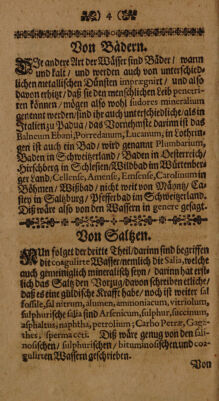 4
Von Bädern.
Die andere Art der Wässer sind Bäder / wann
und kalt / und werden auch von unterschied-
lichen metallischen Dünsten imprægnirt / und also
davon erhitzt / daß sie den menschlichen Leib penetri-
ren können / mögen also wohl sudores mineralium
genennet werden / sind ihr auch unterschiedliche / als in
Italien zu Padua / das Vornehmste darinn ist das
Balneum Ebani, Porredanum, Lucanum, in Lothrin-
gen ist auch ein Bad / wird genannt Plumbarium,
Baden in Schweitzerland / Baden in Oesterreich /
Hirschberg in Schlesien / Wildbad im Würtenber-
ger Land, Cellense, Amonse, Emsense, Carolinum in
Böhmen / Wißbad / nicht weit von Mäyntz / Ca-
stey in Saltzburg / Pfefferbad im Schweitzerland.
Diß wäre also von den Wassern in genere gesagt.
Von Saltzen.
Nun folget der dritte Theil / darinn sind begriffen
die coagulirte Wasser / nemlich die Salia, welche
auch gemeiniglich mineralisch seyn / darinn hat erst-
lich das Saltz den Vorzug / davon schreiben etliche /
daß es eine güldische Krafft habe / noch ist weiter sal
fossile, sal nitrum, alumen, ammoniacum, vitriolum,
sulphurische salia sind Arsenicum, sulphur, succinum,
asphaltus, naphtha, petrolium; Carbo Petræ, Gaga-
thes, sperma ceti. Diß wäre genug von den sali-
nosischen / sulphurischen / bituminosischen und coa-
gulirten Wassern geschrieben.
Von